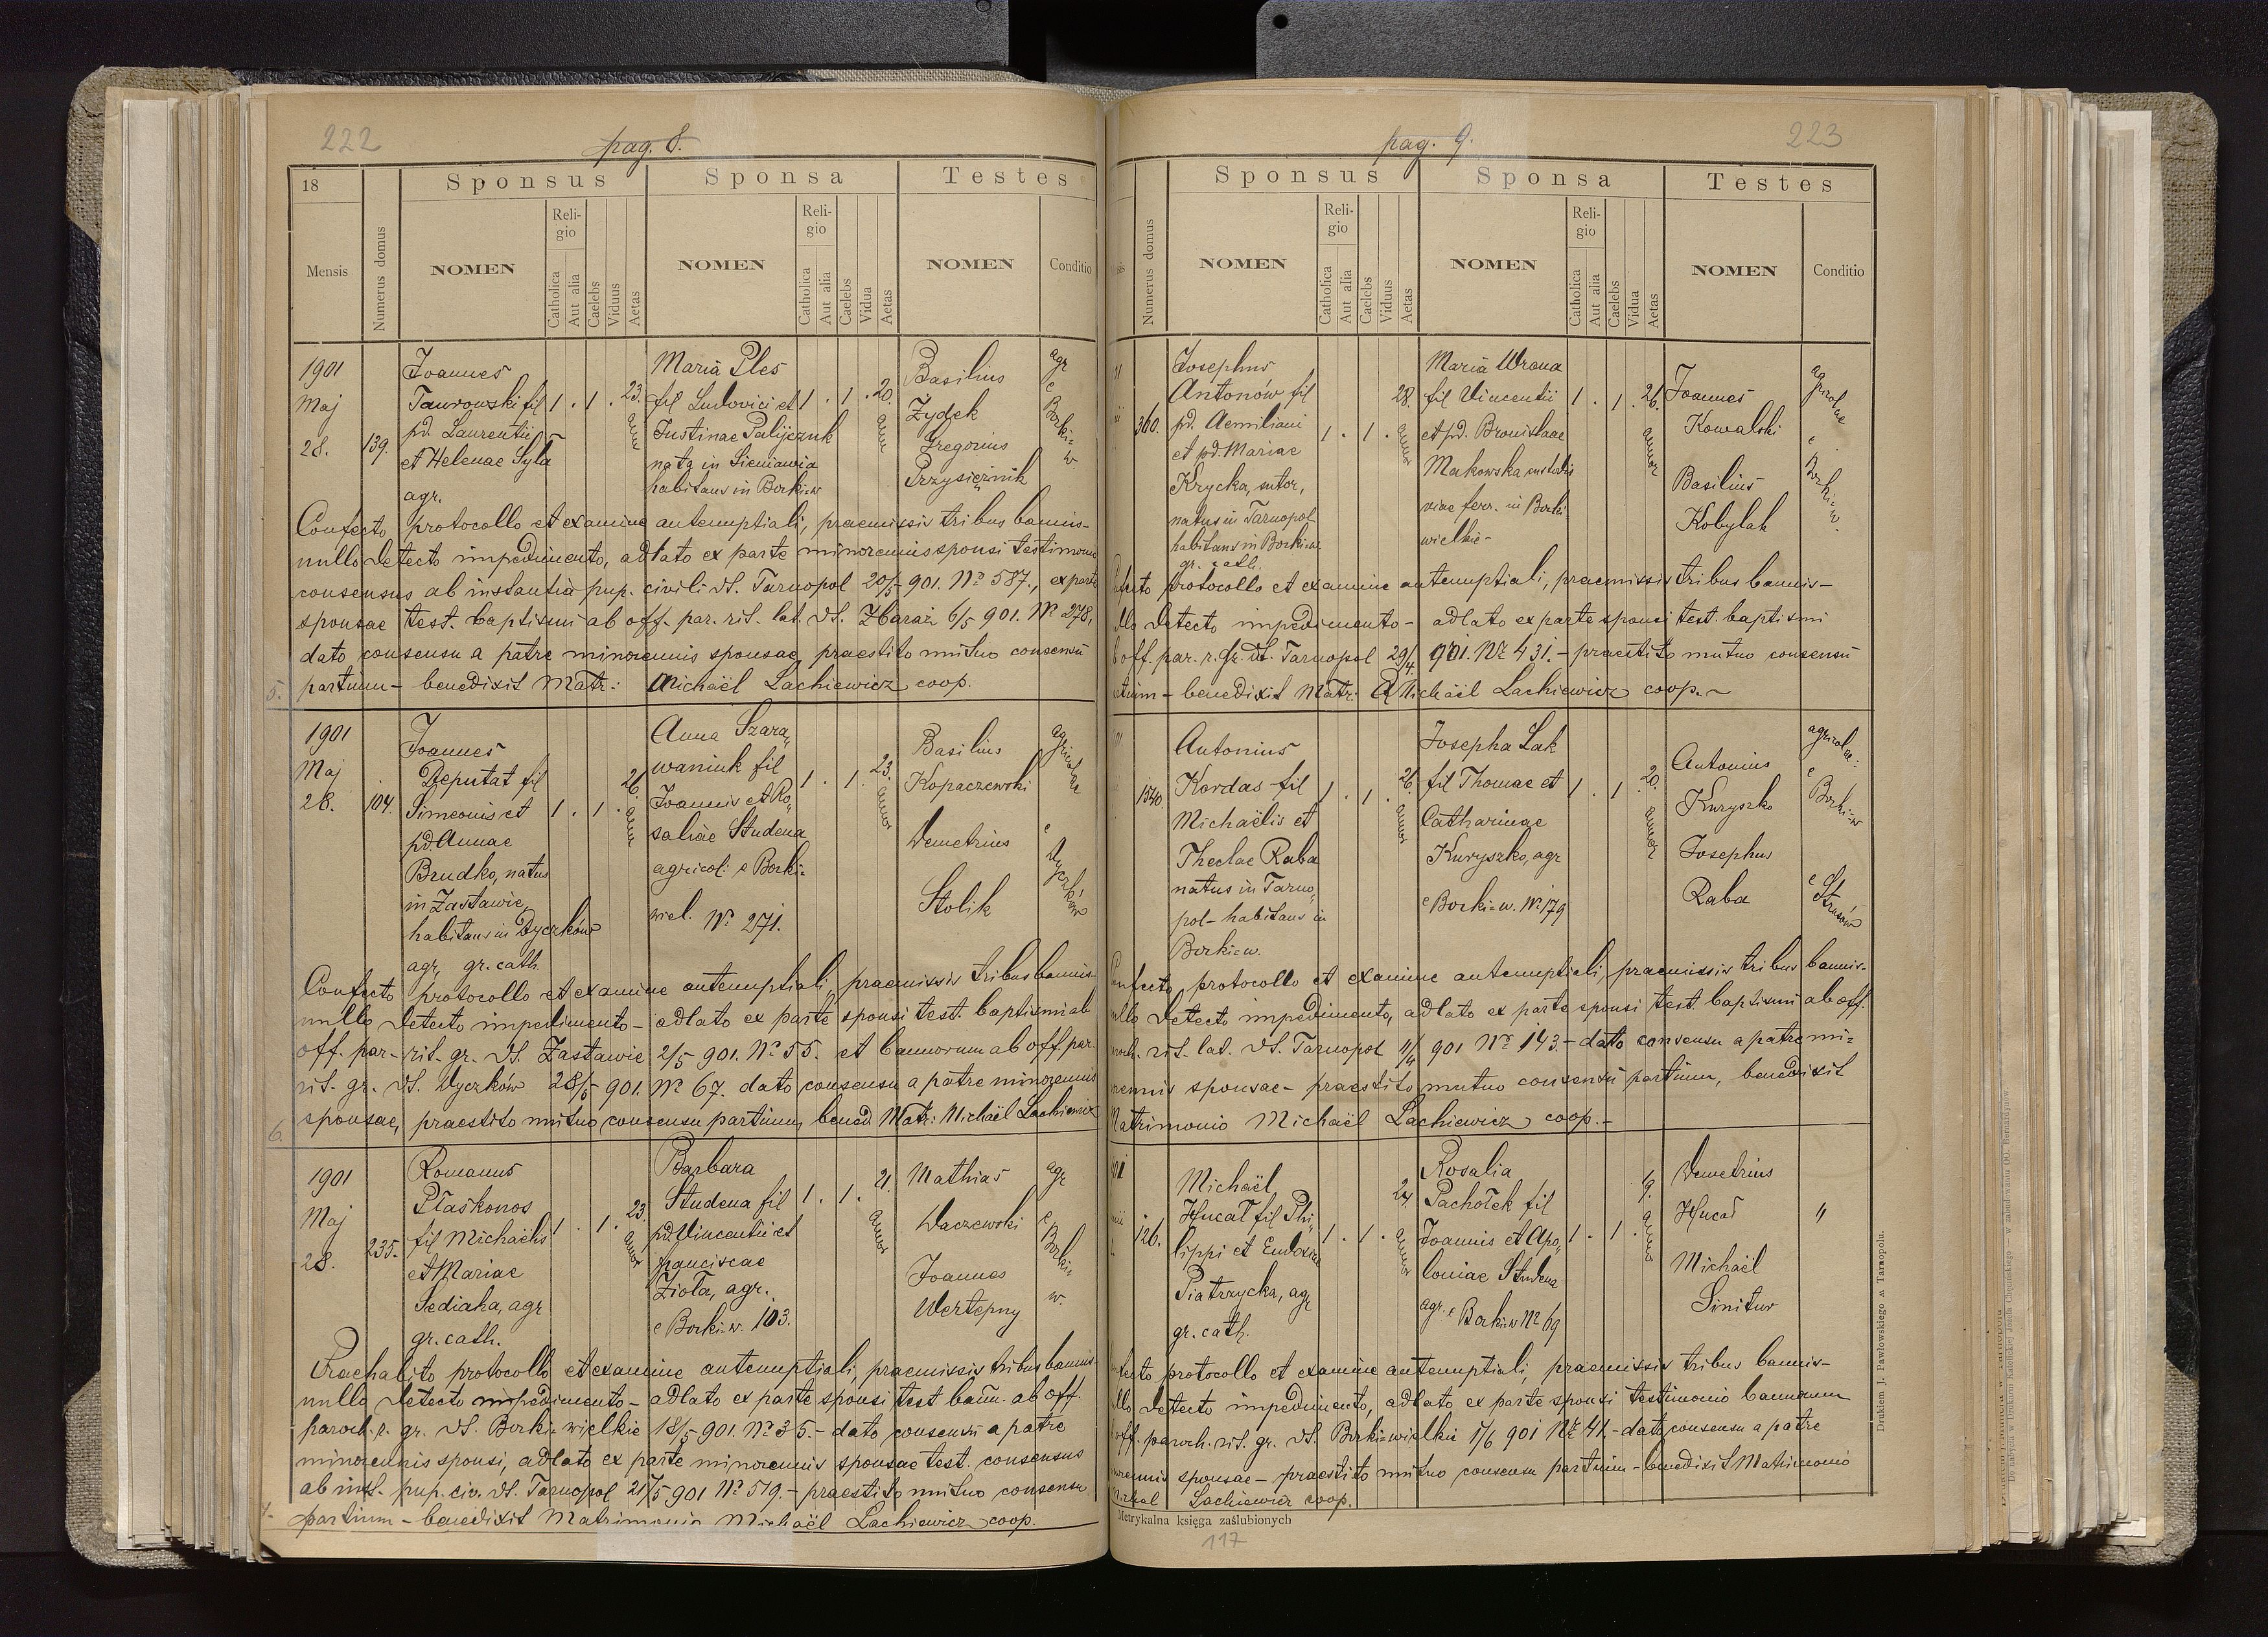 222
pag. 8.
18
Sponsus
Sponsa
Testes
Mensis
Numerus domus
NOMEN
Reli-
gio
Catholica
Aut alia
Caelebs
Viduus
Aetas
NOMEN
Reli-
gio
Catholica
Aut alia
Caelebs
Vidua
Aetas
NOMEN
Conditio
1901
Maj
28.
139.
Joannes
Taurowski fil
pd. Laurentii
et Helenae Syla
agr.
1 . 1 . 23.
ann
Maria Ples
fil Ludovici et
Justinae Palijczuk
nata in Sieniawa
habitans in Borki=w
1 . 1 . 20.
annor
Basilius
Żydek
Gregorius
Przysiężnik
agr
e
Borki=
w
Confecto protocollo et examine antenuptiali, praemissis tribus bannis-
nullo detecto impedimento, adlato ex parte minorennis sponsi testimonio
consensus ab instantia pup. civili dt. Tarnopol 20/5 901. No 587., ex parte
sponsae test. baptismi ab off. par. rit. lat. dt. Zbaraż 6/5 901. No 278,
dato consensu a patre minorennis sponsae, praestito mutuo consensu
5. partium - benedixit Matr: Michaël Lachiewicz coop.
1901
Maj
28.
104.
Joannes
Deputat fil
Simeonis et
pd. Annae
Brudko, natus
in Zastawie,
habitans in Dyczków
agr, gr. cath.
1 . 1 . 26.
annor
Anna Szara„
waniuk fil
Joannis et Ro„
saliae Studena
agricol: e Borki=
wiel. No 271.
1 . 1 . 23.
annor
Basilius
Kopaczewski
Demetrius
Stolik
agricolae
e
Dyczków
Confecto protocollo et examine antenuptiali, praemissis tribus bannis-
nullo detecto impedimento - adlato ex parte sponsi test. baptismi ab
off. par. rit. gr. dt. Zastawie 2/5 901. No 55. et bannorum ab off. par.
rit. gr. dt. Dyczków 28/5 901. No 67. dato consensu a patre minorennis
6. sponsae, praestito mutuo consensu partium, bened. Matr: Michaël Lachiewicz
1901
Maj
28.
235.
Romanus
Płaskonos
fil Michaëlis
et Mariae
Sediaha, agr
gr. cath.
1 . 1 . 23.
annor
Barbara
Studena fil
pd. Vincentii et
Franciscae
Zioła, agr.
e Borki=w. 103.
1 . 1 . 21.
annor
Mathias
Daczewski
Joannes
Wertepny
agr
e
Borki=
w.
Praehabito protocollo et examine antenuptiali, praemissis tribus bannis-
nullo detecto impedimento - adlato ex parte sponsi test bann. ab off.
paroch. r. gr. dt. Borki=wielkie 18/5 901. No 35. - dato consensu a patre
minorennis sponsi, adlato ex parte minorennis sponsae test. consensus
ab inst. pup. civ. dt. Tarnopol 21/5 901 No 519. - praestito mutuo consensu
7. partium - benedixit Matrimonio Michaël Lachiewicz coop.
pag. 9.
223
Sponsus
Sponsa
Testes
Numerus domus
NOMEN
Reli-
gio
Catholica
Aut alia
Caelebs
Viduus
Aetas
NOMEN
Reli-
gio
Catholica
Aut alia
Caelebs
Vidua
Aetas
NOMEN
Conditio
360.
Josephus
Antonów fil
pd. Aemiliani
et pd. Mariae
Krycka, sutor,
natus in Tarnopol
habitans in Borki=w.
gr. cath.
1 . 1 . 28.
annor
Maria Wrona
fil Vincentii
et pd. Bronislaae
Makowska custodis
viae ferr. in Borki
wielkie-
1 . 1 . 26.
annor
Joannes
Kowalski
Basilius
Kobylak
agricolae
e
Borki=w.
protocollo et examine antenuptiali, praemissis tribus bannis-
detecto impedimento - adlato ex parte sponsi test. baptismi
off. par. r. gr. dt. Tarnopol 29/4 901. No 431. - praestito mutuo consensu
- benedixit Matr: Michaël Lachiewicz coop.-
1540.
Antonius
Kordas fil
Michaëlis et
Theclae Raba
natus in Tarno„
pol - habitans in
Borki=w.
1 . 1 . 26.
annor
Josepha Lak
fil Thomae et
Catharinae
Kuryszko, agr
e Borki=w. No 179
1 . 1 . 20.
annor
Antonius
Kuryszko
Josephus
Raba
agricolae:
e
Borki=w
e Strusów
protocollo et examine antenuptiali, praemissis tribus bannis-
detecto impedimento, adlato ex parte sponsi test. baptismi ab off.
rit. lat. dt. Tarnopol 11/4 901 No 143. - dato consensu a patre mi=
sponsae - praestito mutuo consensu partium, benedixit
Matrimonio Michaël Lachiewicz coop.-
126.
Michaël
Hucał fil Phi„
lippi et Eudoxiae
Piatrzycka, agr
gr. cath.
1 . 1 . 24.
annor
Rosalia
Pachołek fil
Joannis et Apo„
loniae Studena
agr. e Borki=w No 69
1 . 1 . 19.
annor
Demetrius
Hucał
Michaël
Sinitur
"
protocollo et examine antenuptiali, praemissis tribus bannis-
detecto impedimento, adlato ex parte sponsi testimonio bannorum
off. paroch. rit. gr. dt. Borki=wielkie 1/6 901 No 41. - dato consensu a patre
sponsae - praestito mutuo consensu partium - benedixit Matrimonio
Lachiewicz coop.
Metrykalna księga zaślubionych
117
Drukiem J. Pawłowskiego w Tarnopolu.